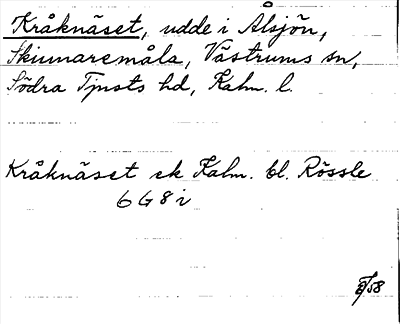 Kråknäset, udde i Ålsjön,
Skinnaremåla, Västrums sn,
Södra Tjusts hd, Kalm. l.
Kråknäset ek Kalm. bl. Rössle
6 G 8 i
58